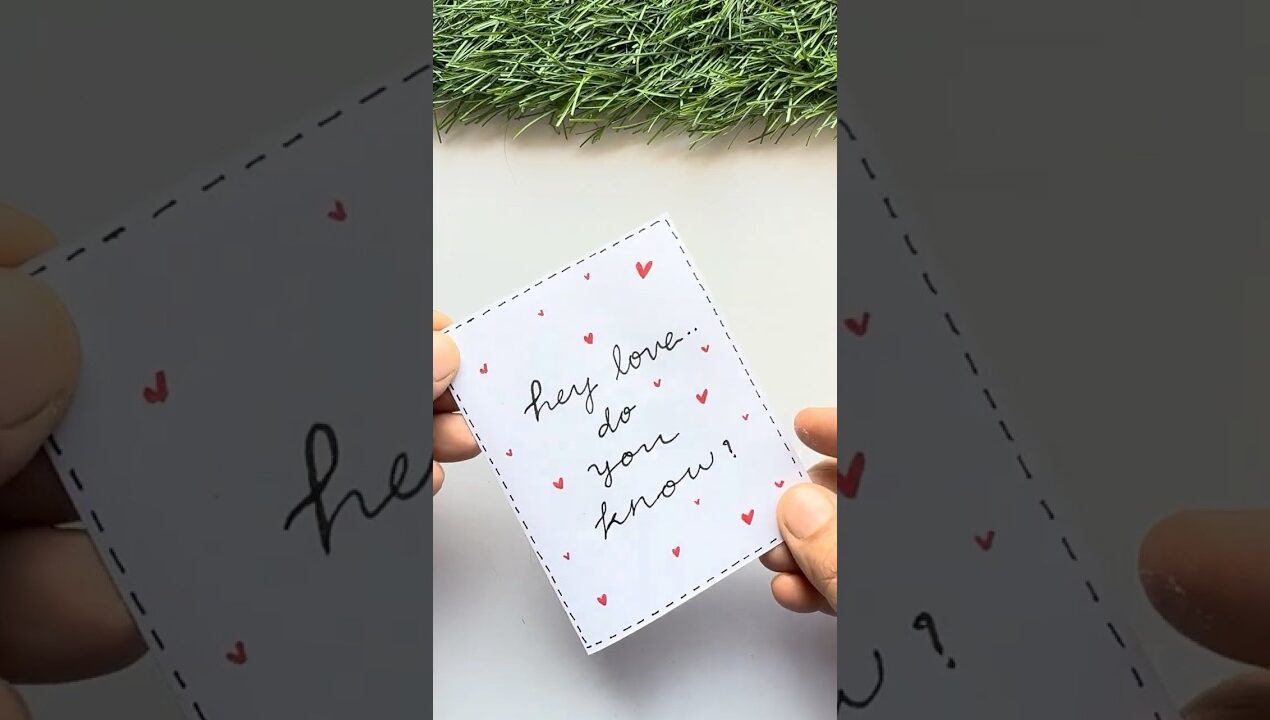 hey love..
do
you
know?